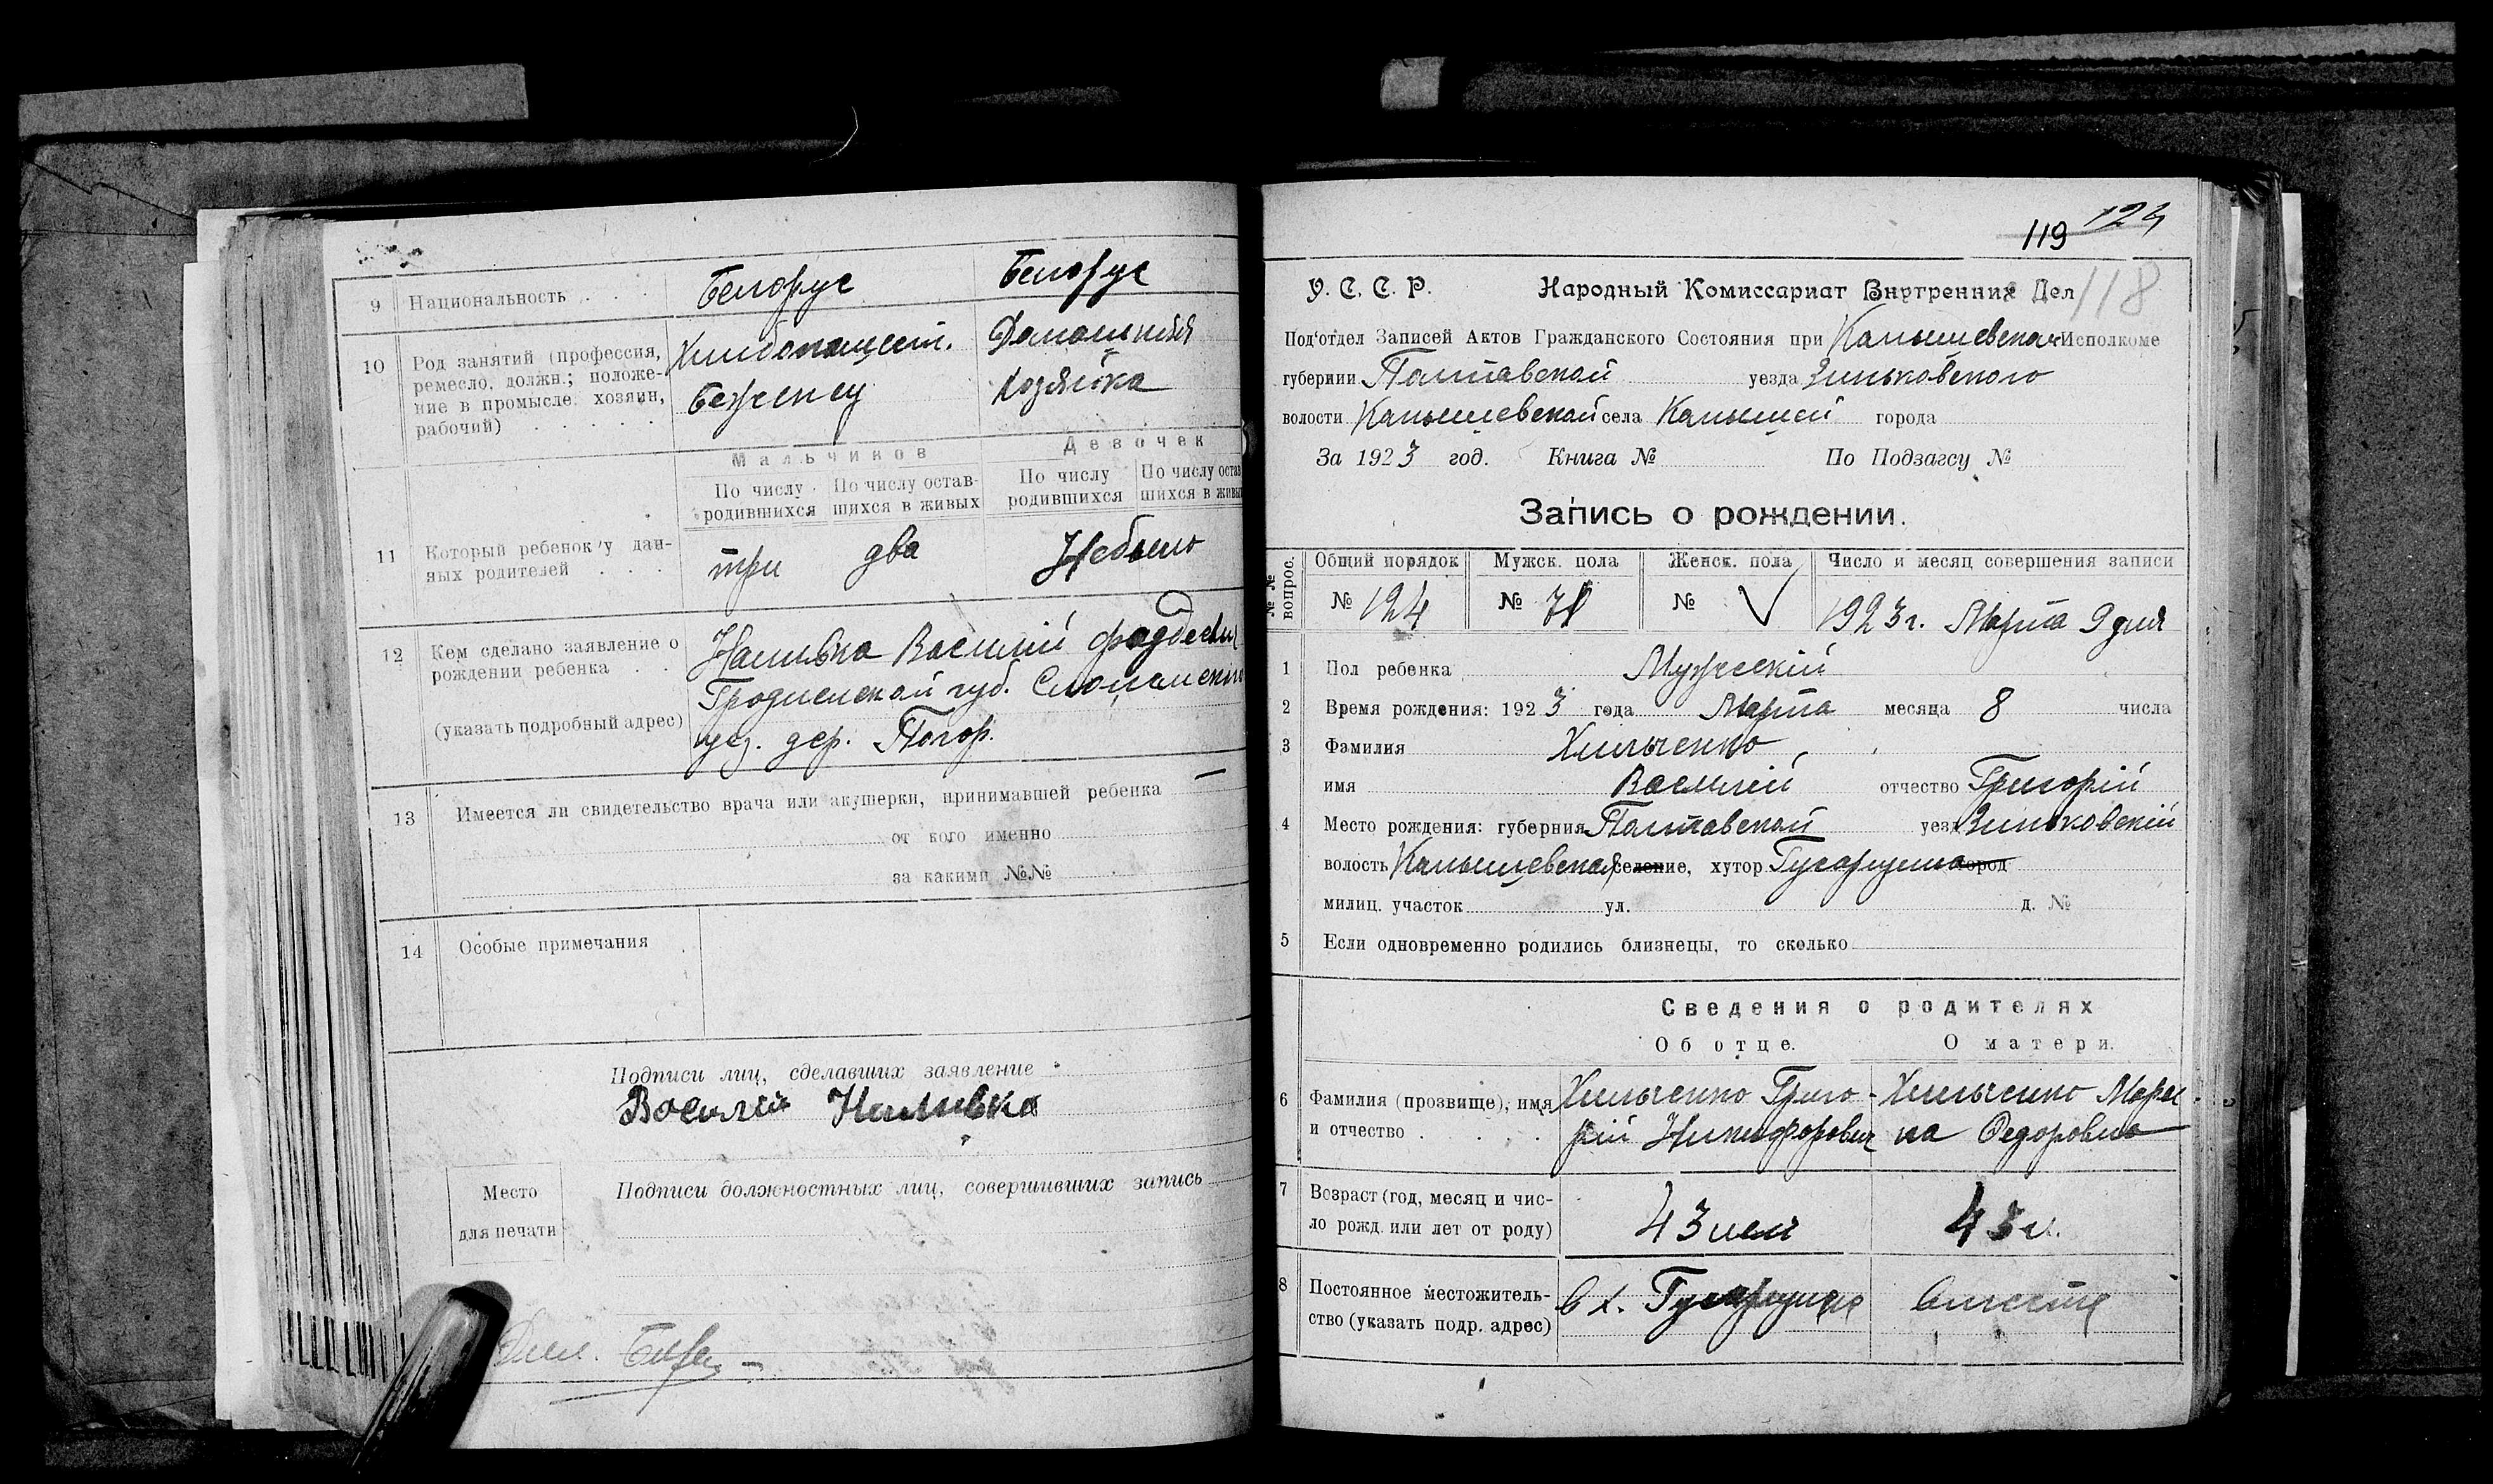 9 Национальность . . . Белорус Белорус
10 Род занятий (профессия, ремесло, должн.; положение в промысле: хозяин, рабочий) . . . . .
Беженец Домашния хозяйка
Мальчиков Девочек
По числу родившихся По числу оставшихся в живых По числу родившихся По числу остав
шихся в живы
11 Который ребенок у данных родителей . . . три два Небыло
12 Кем сделано заявление о
рождении ребенка . .
(указать подробный адрес)
Наливка Василий
Гродненской губ.
уез. дер.
13 Имеется ли свидетельство врача или акушерки, принимавшей ребенка —
от кого именно
за какими №№
14 Особые примечания
Подписи лиц, сделавших заявление
Василий Наливка
Место
для печати
Подписи должностных лиц, совершивших запись
119 124
118
У. С. С. Р. Народный Комиссариат Внутренних Дел
Под'отдел Записей Актов Гражданского Состояния при Исполкоме
губернии Полтавской уезда Зиньковского
волости села города
За 1923 год. Книга № По Подзагсу №
Запись о рождении.
№№ вопрос. Общий порядок Мужск. пола Женск. пола Число и месяц совершения записи
№ 124 № 71 № V 1923 г. Марта 9 дня
1 Пол ребенка Мужескій
2 Время рождения: 1923 года Марта месяца 8 числа
3 Фамилия Хильченко
имя Василій отчество Григорій
4 Место рождения: губерния Полтавской уезд Зиньковскій
волость селение, хутор город
милиц. участок ул. д. №
5 Если одновременно родились близнецы, то сколько
Сведения о родителях
Об отце. О матери.
6 Фамилия (прозвище), имя
и отчество . . . .
Хильченко Григо-
рій Никифорович
Хильченко
Федоровна
7 Возраст (год, месяц и чис-
ло рожд. или лет от роду)
43 43 л.
8 Постоянное местожитель-
ство (указать подр. адрес)
в х. вместе